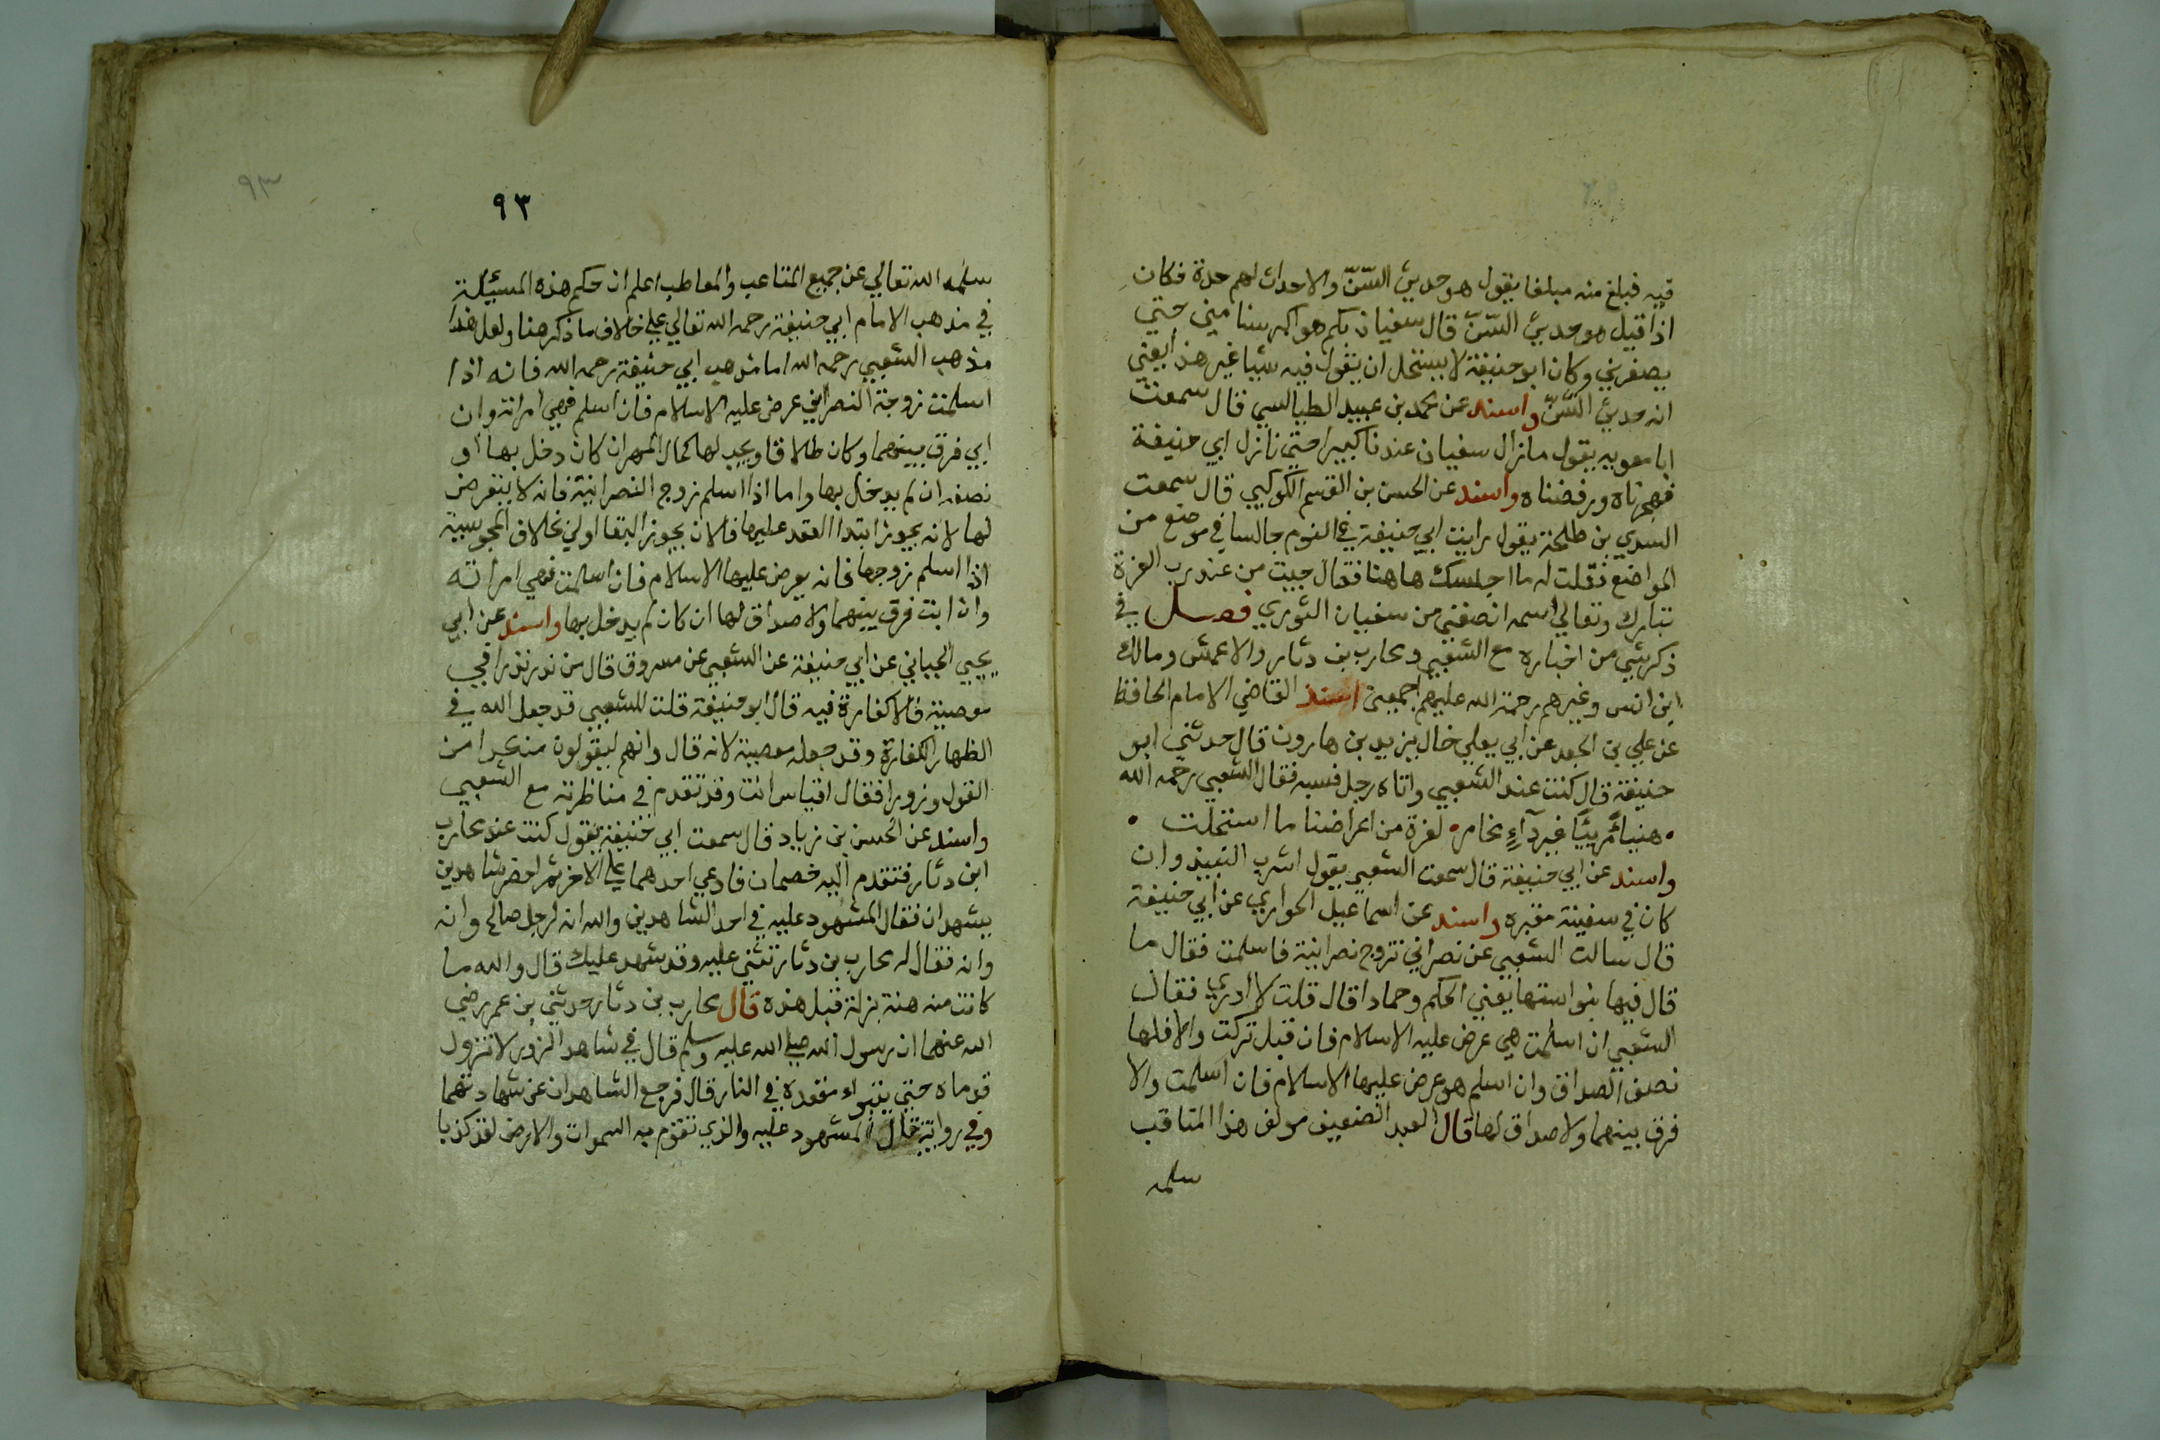 فيه فبلغ منه مبلغا يقول هو حديث السّنّ والاحداث لهم حدة فكان
اذا قيل هو حديث السّنّ قال سفيان بكم هو اكبر سنا مني حتي
يصغرني وكان ابو حنيفة لا يستحل ان يقول فيه شيا غير هذا يعني
انه حديث السّنّ واسند عن محمد بن عبيد الطيالسي قال سمعت
ابا معويه يقول مازال سفيان عندنا كبيرا حتي نازل ابي حنيفة
فهجرناه ورفضناه واسند عن الحسن بن القسم الكوكبي قال سمعت
السدي بن طلحة يقول رايت ابي حنيفة في النوم جالسا في موضع من
المواضع فقلت له ما اجلسك هاهنا فقال جيت من عند رب العزة
تبارك وتعالي اسمه انصفني من سفيان الثوري فصل في
ذكر شي من اخباره مع الشعبي ومحارب بن دثار والاعمش ومالك
ابن انس وغيرهم رحمة الله عليهم اجمعين اسند القاضي الامام الحافظ
عن علي بن الجعد عن ابي يعلي خال يزيد بن هارون قال حدثني ابو
حنيفة قال كنت عند الشعبي واتاه رجل فسبه فقال الشعبي رحمه الله
• هنيأ مريئًا غير دآءٍ مخامر • لعزة من اعراضنا ما استحلت •
واسند عن ابي حنيفة قال سمعت الشعبي يقول اشرب النبيذ وان
كان في سفينة مقيره واسند عن اسماعيل الحواري عن ابي حنيفة
قال سالت الشعبي عن نصراني تزوج نصرانية فاسلمت فقال ما
قال فيها بنو استها يعني الحكم وحمادا قال قلت لا ادري فقال
الشعبي ان اسلمت هي عرض عليه الاسلام فان قبل تركت والا فلها
نصف الصداق وان اسلم هو عرض عليها الاسلام فان اسلمت والا
فرق بينهما ولا صداق لها قال العبد الضعيف مولف هذا المناقب
سلمه
٩٣
٩٣
سلمه الله تعالي عن جميع المتاعب والمعاطب اعلم ان حكم هذه المسئيلة
في مذهب الامام ابي حنيفة رحمه الله تعالي علي خلاف ما ذكر هنا ولعل هذا
مذهب الشعبي رحمه الله اما مذهب ابي حنيفة رحمه الله فانه اذا
اسلمت زوجة النصراني عرض عليه الاسلام فان اسلم فهي امراته وان
ابي فرق بينهما وكان طلاقا ويجب لها كمال المهر ان كان دخل بها او
نصفه ان لم يدخل بها واما اذا اسلم زوج النصرانية فانه لا يتعرض
لها لانه يجوز ابتدا العقد عليها فلان يجوز البقا اولي بخلاف المجوسية
اذا اسلم زوجها فانه يعرض عليها الاسلام فان اسلمت فهي امراته
وان ابت فرق بينهما ولا صداق لها ان كان لم يدخل بها واسند عن ابي
يحيي الحباني عن ابي حنيفة عن الشعبي عن مسروق قال من نذر نذرا في
معصية فلا كفارة فيه قال ابو حنيفة قلت للشعبي قد جعل الله في
الظهار الكفارة وقد جعله معصية لانه قال وانهم ليقولون منكرا من
القول وزورا فقال اقياس انت وقد تقدم في مناظرته مع الشعبي
واسند عن الحسن بن زياد قال سمعت ابي حنيفة يقول كنت عند محارب
ابن دثار فتقدم اليه خصمان فادعي احدهما علي الاخر ثم احضر شاهدين
يشهدان فقال المشهود عليه في احد الشاهدين والله انه لرجل صالح وانه
وانه فقال له محارب بن دثار تثني عليه وقد شهد عليك قال والله ما
كانت منه هنة بزلة قبل هذه قال محارب بن دثار حدثني بن عمر رضي
الله عنهما ان رسول الله صلي الله عليه وسلم قال في شاهد الزور لا تزول
قدماه حتي يتبواء مقعده في النار قال فرجع الشاهدان عن شهادتهما
وفي رواية قال المشهود عليه والذي تقوم به السموات والارض لقد كذبا